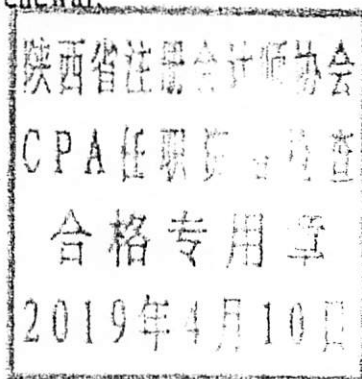 enewal
陕西省注册会计师协会
CPA任职资格检查
合格专用章
2019年4月10日